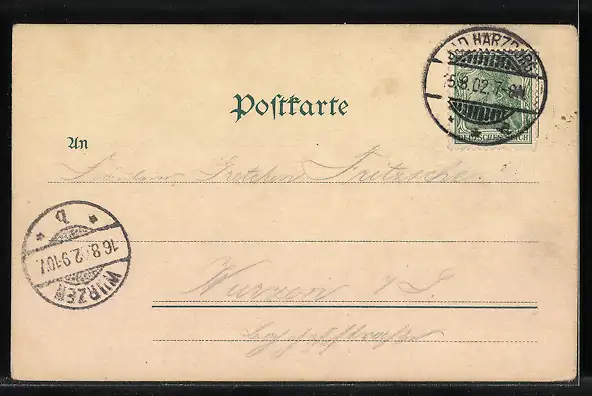 BAD HARZBURG
15.8.02.7-8N.
DEUTSCHES REICH
Postkarte
An
Fräulein Gretchen Fritzsche.
WURZEN
16.8.02.9-10V.
b
Wurzen i/S.
Bahnhofstraße